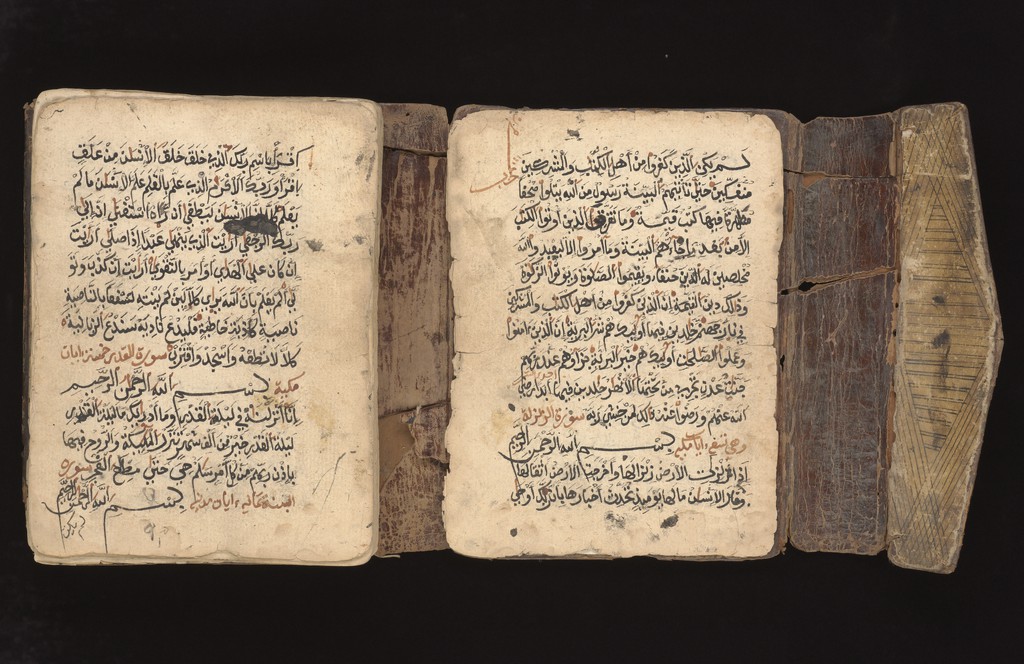 اقرأ باسم ربك الذي خلق خلق الانسن من علق
اقرا وربك الاكرم الذي علم بالقلم علم الانسن ما لم
يعلم كلا ان الانسن ليطغي ان راه استغني ان الي
ربك الرجعي اريت الذي ينهي عبدا اذا صلي اريت
ان كان علي الهدي او امر بالتقوي اريت ان كذب وتو
لي الم يعلم بان الله يري كلا لين لم ينته لنسفعا بالناصية
ناصية كاذبة خاطية فليدع نادية سندع الزبانية
كلا لا تطعه واسجد واقترب سورة القدر خمس ايات
مكية بسم الله الرحمن الرحيم
انا انزلنه في ليلة القدر وما ادريك ما ليلة القدر
ليلة القدر خير من الف شهر تنزل المليكة والروح فيها
باذن ربهم من كل امر سلم هي حتي مطلع الفجر سورة
البينة ثمانية ايات مدنية بسم الله الرحمن الرحيم
لم يكن
لم يكن الذين كفروا من اهل الكتاب والمشركين
منفكين حتي تاتيهم البينة رسول من الله يتلوا صحفا
مطهرة فيها كتب قيمة وما تفرق الذين اوتوا الكتب
الا من بعد ما جاتهم البينة وما امروا الا ليعبدوا الله
مخلصين له الدين حنفا ويقيموا الصلوة ويوتوا الزكوة
وذلك دين القيمة ان الذين كفروا من اهل الكتب والمشركين
في نار جهنم خلدين فيها اوليك هم شر البرية ان الذين امنوا
وعملوا الصلحت اوليك هم خير البرية جزاوهم عند ربهم
جنت عدن تجري من تحتها الانهر خلدين فيها ابدا رضي
الله عنهم ورضوا عنه ذلك لمن خشي ربه سورة الزلزلة
وهي تسع ايات مكية بسم الله الرحمن الرحيم
اذا زلزلت الارض زلزالها واخرجت الارض اثقالها
وقال الانسن مالها يوميذ تحدث اخبارها بان ربك اوحي